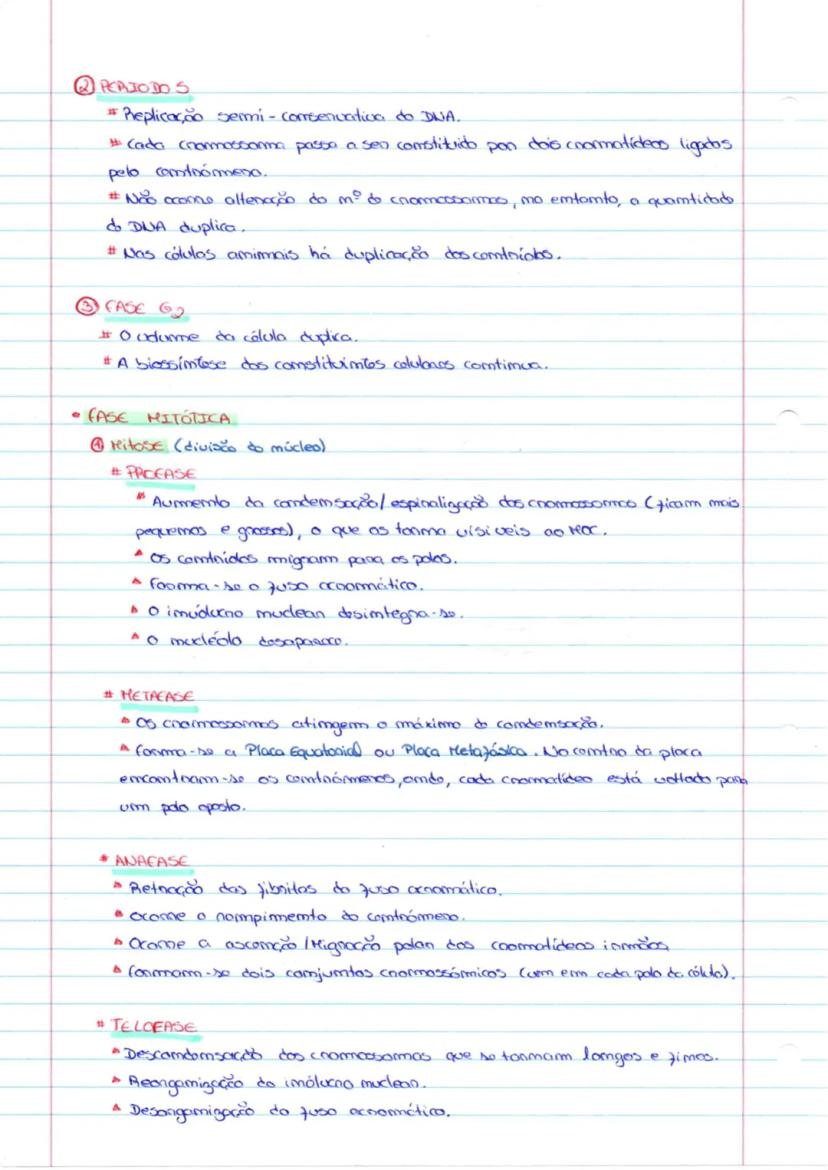 ② PERIODO S
# Replicação semi-conservativa do DNA.
# Cada cromossoma passa a ser constituído por dois cromatídeos ligados
pelo centrómero.
# Não ocorre alteração do nº de cromossomas, no entanto, a quantidade
de DNA duplica.
# Nas células animais há duplicação dos centríolos.
③ FASE G2
# O volume da célula duplica.
# A biossíntese dos constituintes celulares continua.
• FASE MITÓTICA
① Mitose (divisão do núcleo)
# PROFASE
Aumento da condensação/espiralização dos cromossomos (ficam mais
pequenos e grossos), o que os torna visíveis ao MOC.
Os centríolos migram para os polos.
Forma-se o fuso acromático.
O invólucro nuclear desintegra-se.
O nucléolo desaparece.
# METAFASE
Os cromossomas atingem o máximo de condensação.
Forma-se a Placa Equatorial ou Placa Metafásica. No centro da placa
encontram-se os centrómeros, onde, cada cromatídeo está voltado para
um polo oposto.
* ANAFASE
Retração das fibrilas do fuso acromático.
Ocorre o rompimento do centrómero.
Ocorre a ascenção/Migração polar dos cromatídeos irmãos
Formam-se dois conjuntos cromossómicos (um em cada polo da célula).
# TELOFASE
Descondensação dos cromossomas que se tornam longos e finos.
Reorganização do invólucro nuclear.
Desorganização do fuso acromático.